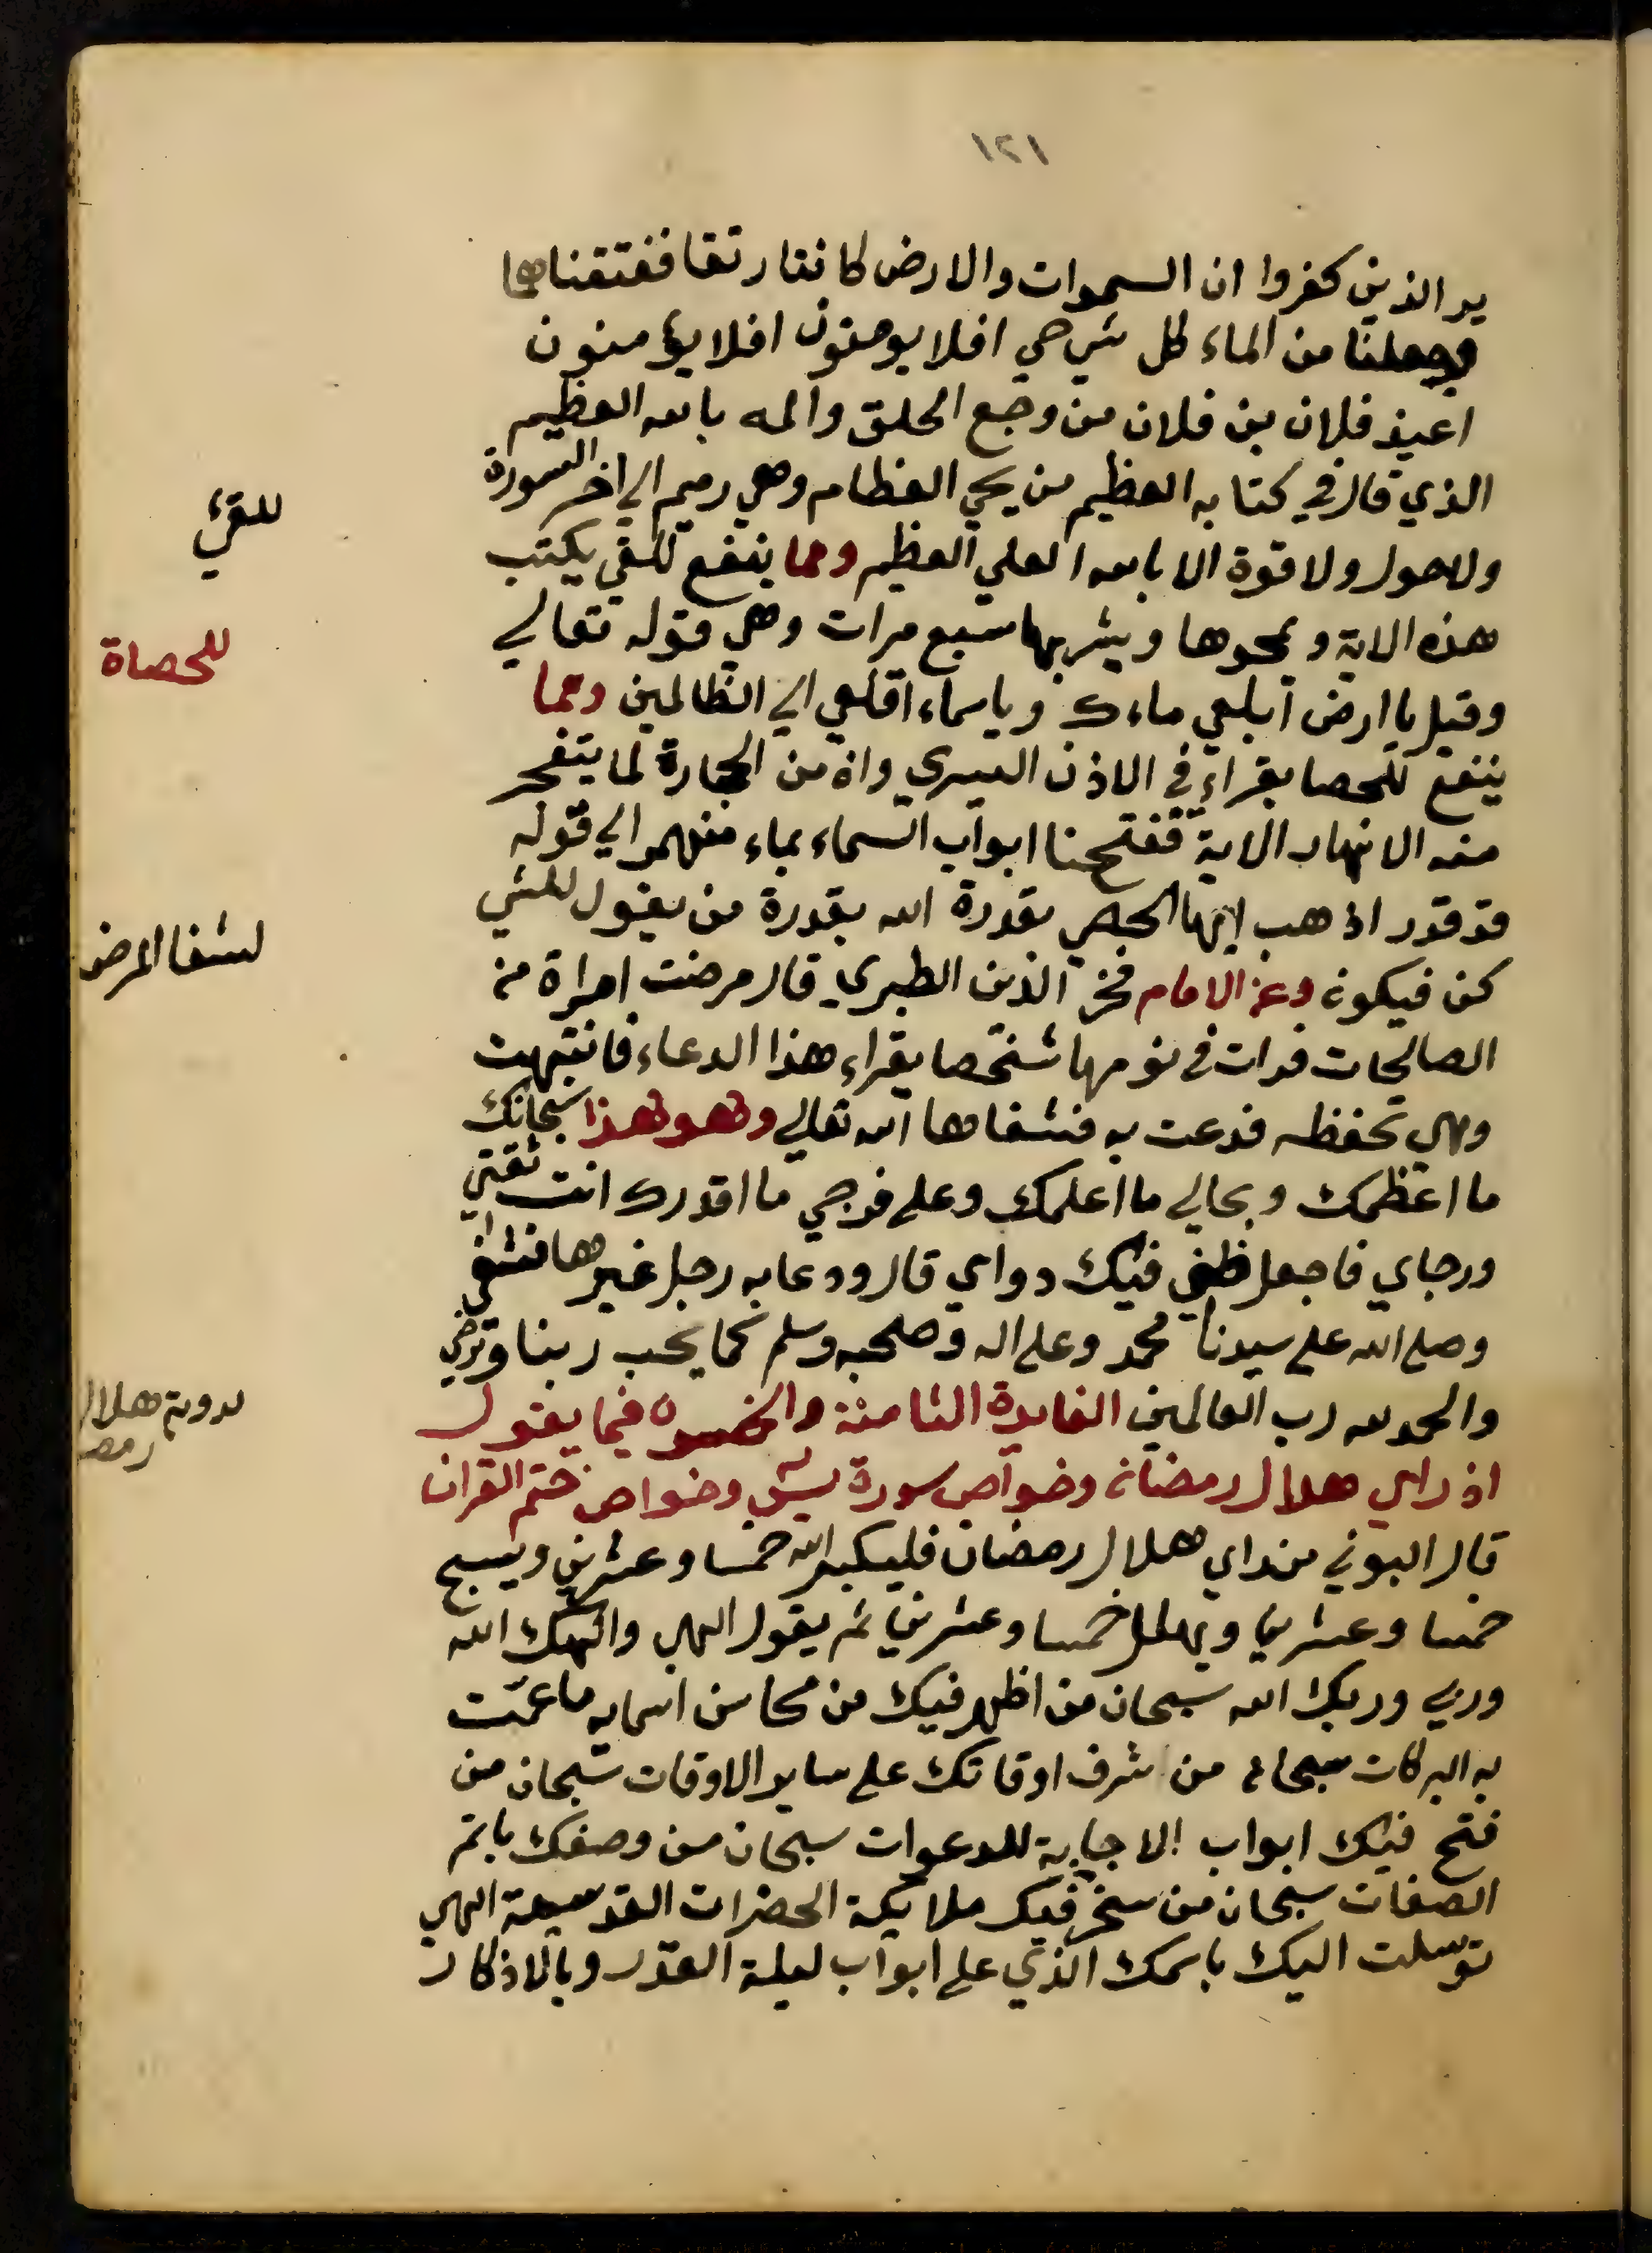 ١٢١
ير الذين كفروا ان السموات والارض كانتا رتقا ففتقناهما
وجعلنا من الماء كل شي حي افلا يومنون افلا يؤمنون
اعيذ فلان بن فلان من وجع الحلق والمه بالله العظيم
الذي قال في كتابه العظيم من يحي العظام وهي رميم الي اخر السورة
ولا حول ولا قوة الا بالله العلي العظيم ومما ينفع للقي يكتب
للقئ
هذه الاية ويمحوها ويشربها سبع مرات وهي قوله تعالي
للحصاة
وقيل يا ارض ابلعي ماءك وياسماء اقلعي الي الظالمين ومما
ينفع للحصا يقراء في الاذن اليسري وان من الحجارة لما يتفجر
منه الانهار الاية ففتحنا ابواب السماء بماء منهمر الي قوله
قد قدر اذهب ايها الحصي بقدرة الله بقدرة من يقول للشي
لشفا المرض
كن فيكون وعن الامام فخر الذين الطبري قال مرضت امراة من
الصالحات فرات في نومها شخصا يقراء هذا الدعاء فانتبهت
وهي تحفظه فدعت به فشفاها الله تعالي وهو هذا سبحانك
ما اعظمك وبحالي ما اعلمك وعلي فرجي ما اقدرك انت ثقتي
ورجاي فاجعل ظني فيك دواي قال ودعا به رجل غيرها فشفي
وصلي الله علي سيدنا محمد وعلي اله وصحبه وسلم كما يحب ربنا وترضي
والحمد لله رب العالمين الفايدة الثامنة والخمسون فيما يقول
لروية هلال رمضـ
اذ راي هلال رمضان وخواص سورة يس وخواص ختم القران
قال البوني من راي هلال رمضان فليكبر الله خمسا وعشرين ويسبح
خمسا وعشرين ويهلل خمسا وعشرين ثم يقول الهي والهك الله
وربي وربك الله سبحان من اظهر فيك من محاسن اسمايه ما عمت
به البركات سبحان من شرف اوقاتك علي ساير الاوقات سبحان من
فتح فيك ابواب الاجابة للدعوات سبحان من وصفك باتم
الصفات سبحان من سخر فيك ملايكة الحضرات القدسية الهي
توسلت اليك باسمك الذي علي ابواب ليلة القدر وبالاذكار